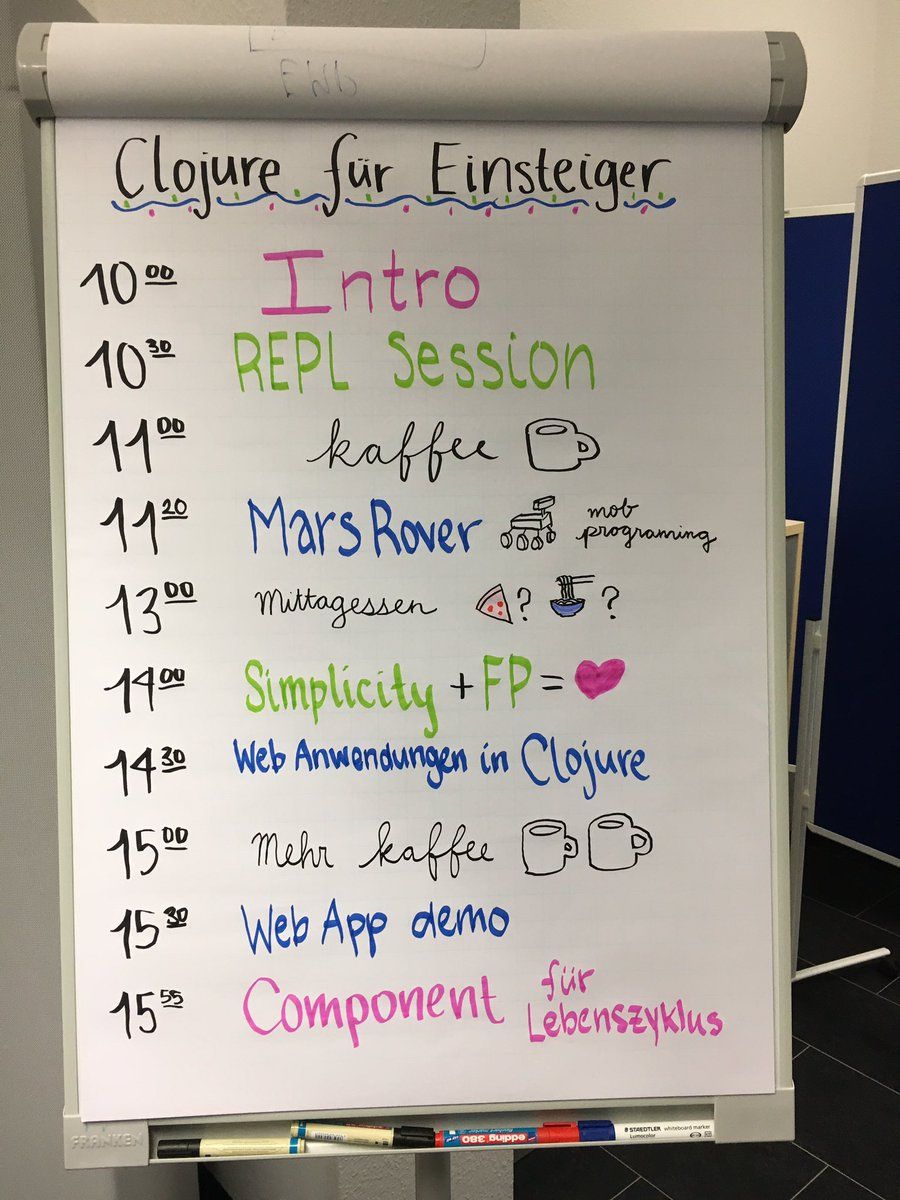 Clojure für Einsteiger
10 00 Intro
10 30 REPL Session
11 00 kaffee
11 20 Mars Rover mob programing
13 00 Mittagessen ? ?
14 00 Simplicity + FP =
14 30 Web Anwendungen in Clojure
15 00 Mehr kaffee
15 30 Web App demo
15 55 Component für Lebenszyklus
FRANKEN
edding 380
STAEDTLER whiteboard marker
Lumocolor